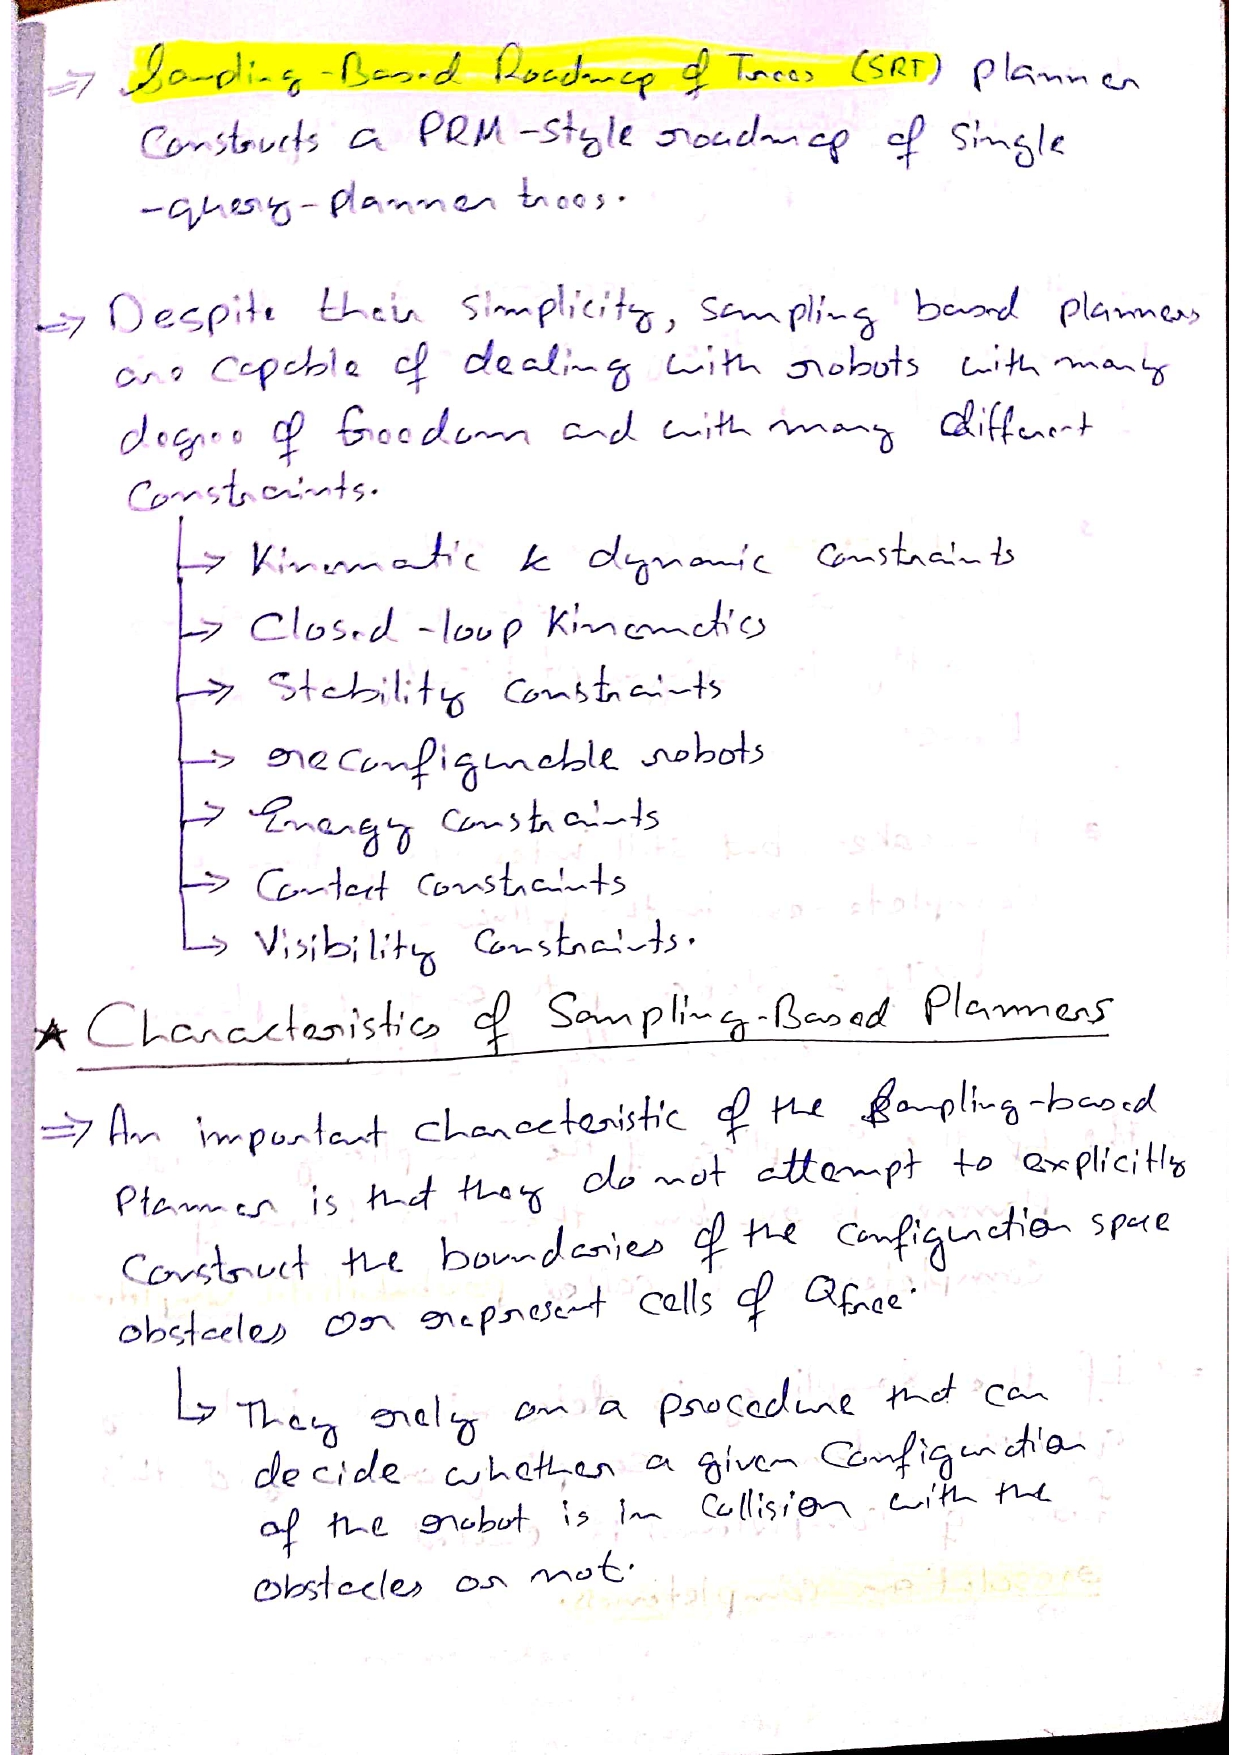 ⇒ Sampling-Based Roadmap of Trees (SRT) planner
Constructs a PRM-style roadmap of single
-query-planner trees.
⇒ Despite their simplicity, sampling based planners
are capable of dealing with robots with many
degree of freedom and with many different
Constraints.
↳ Kinematic & dynamic constraints
↳ Closed-loop Kinematics
↳ Stability constraints
↳ reconfigurable robots
↳ Energy constraints
↳ Contact constraints
↳ Visibility constraints.
★ Characteristics of Sampling-Based Planners
⇒ An important characteristic of the Sampling-based
Planner is that they do not attempt to explicitly
Construct the boundaries of the configuration space
obstacles or represent cells of Qfree.
↳ They rely on a procedure that can
decide whether a given Configuration
of the robot is in Collision with the
Obstacles or not.